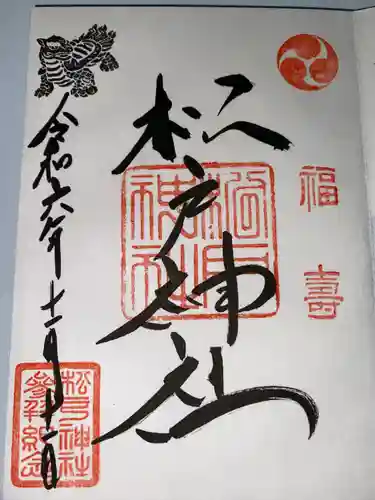 福壽
松戸神社
松戸神社
令和六年十一月十一日
松戸神社
参拝紀念